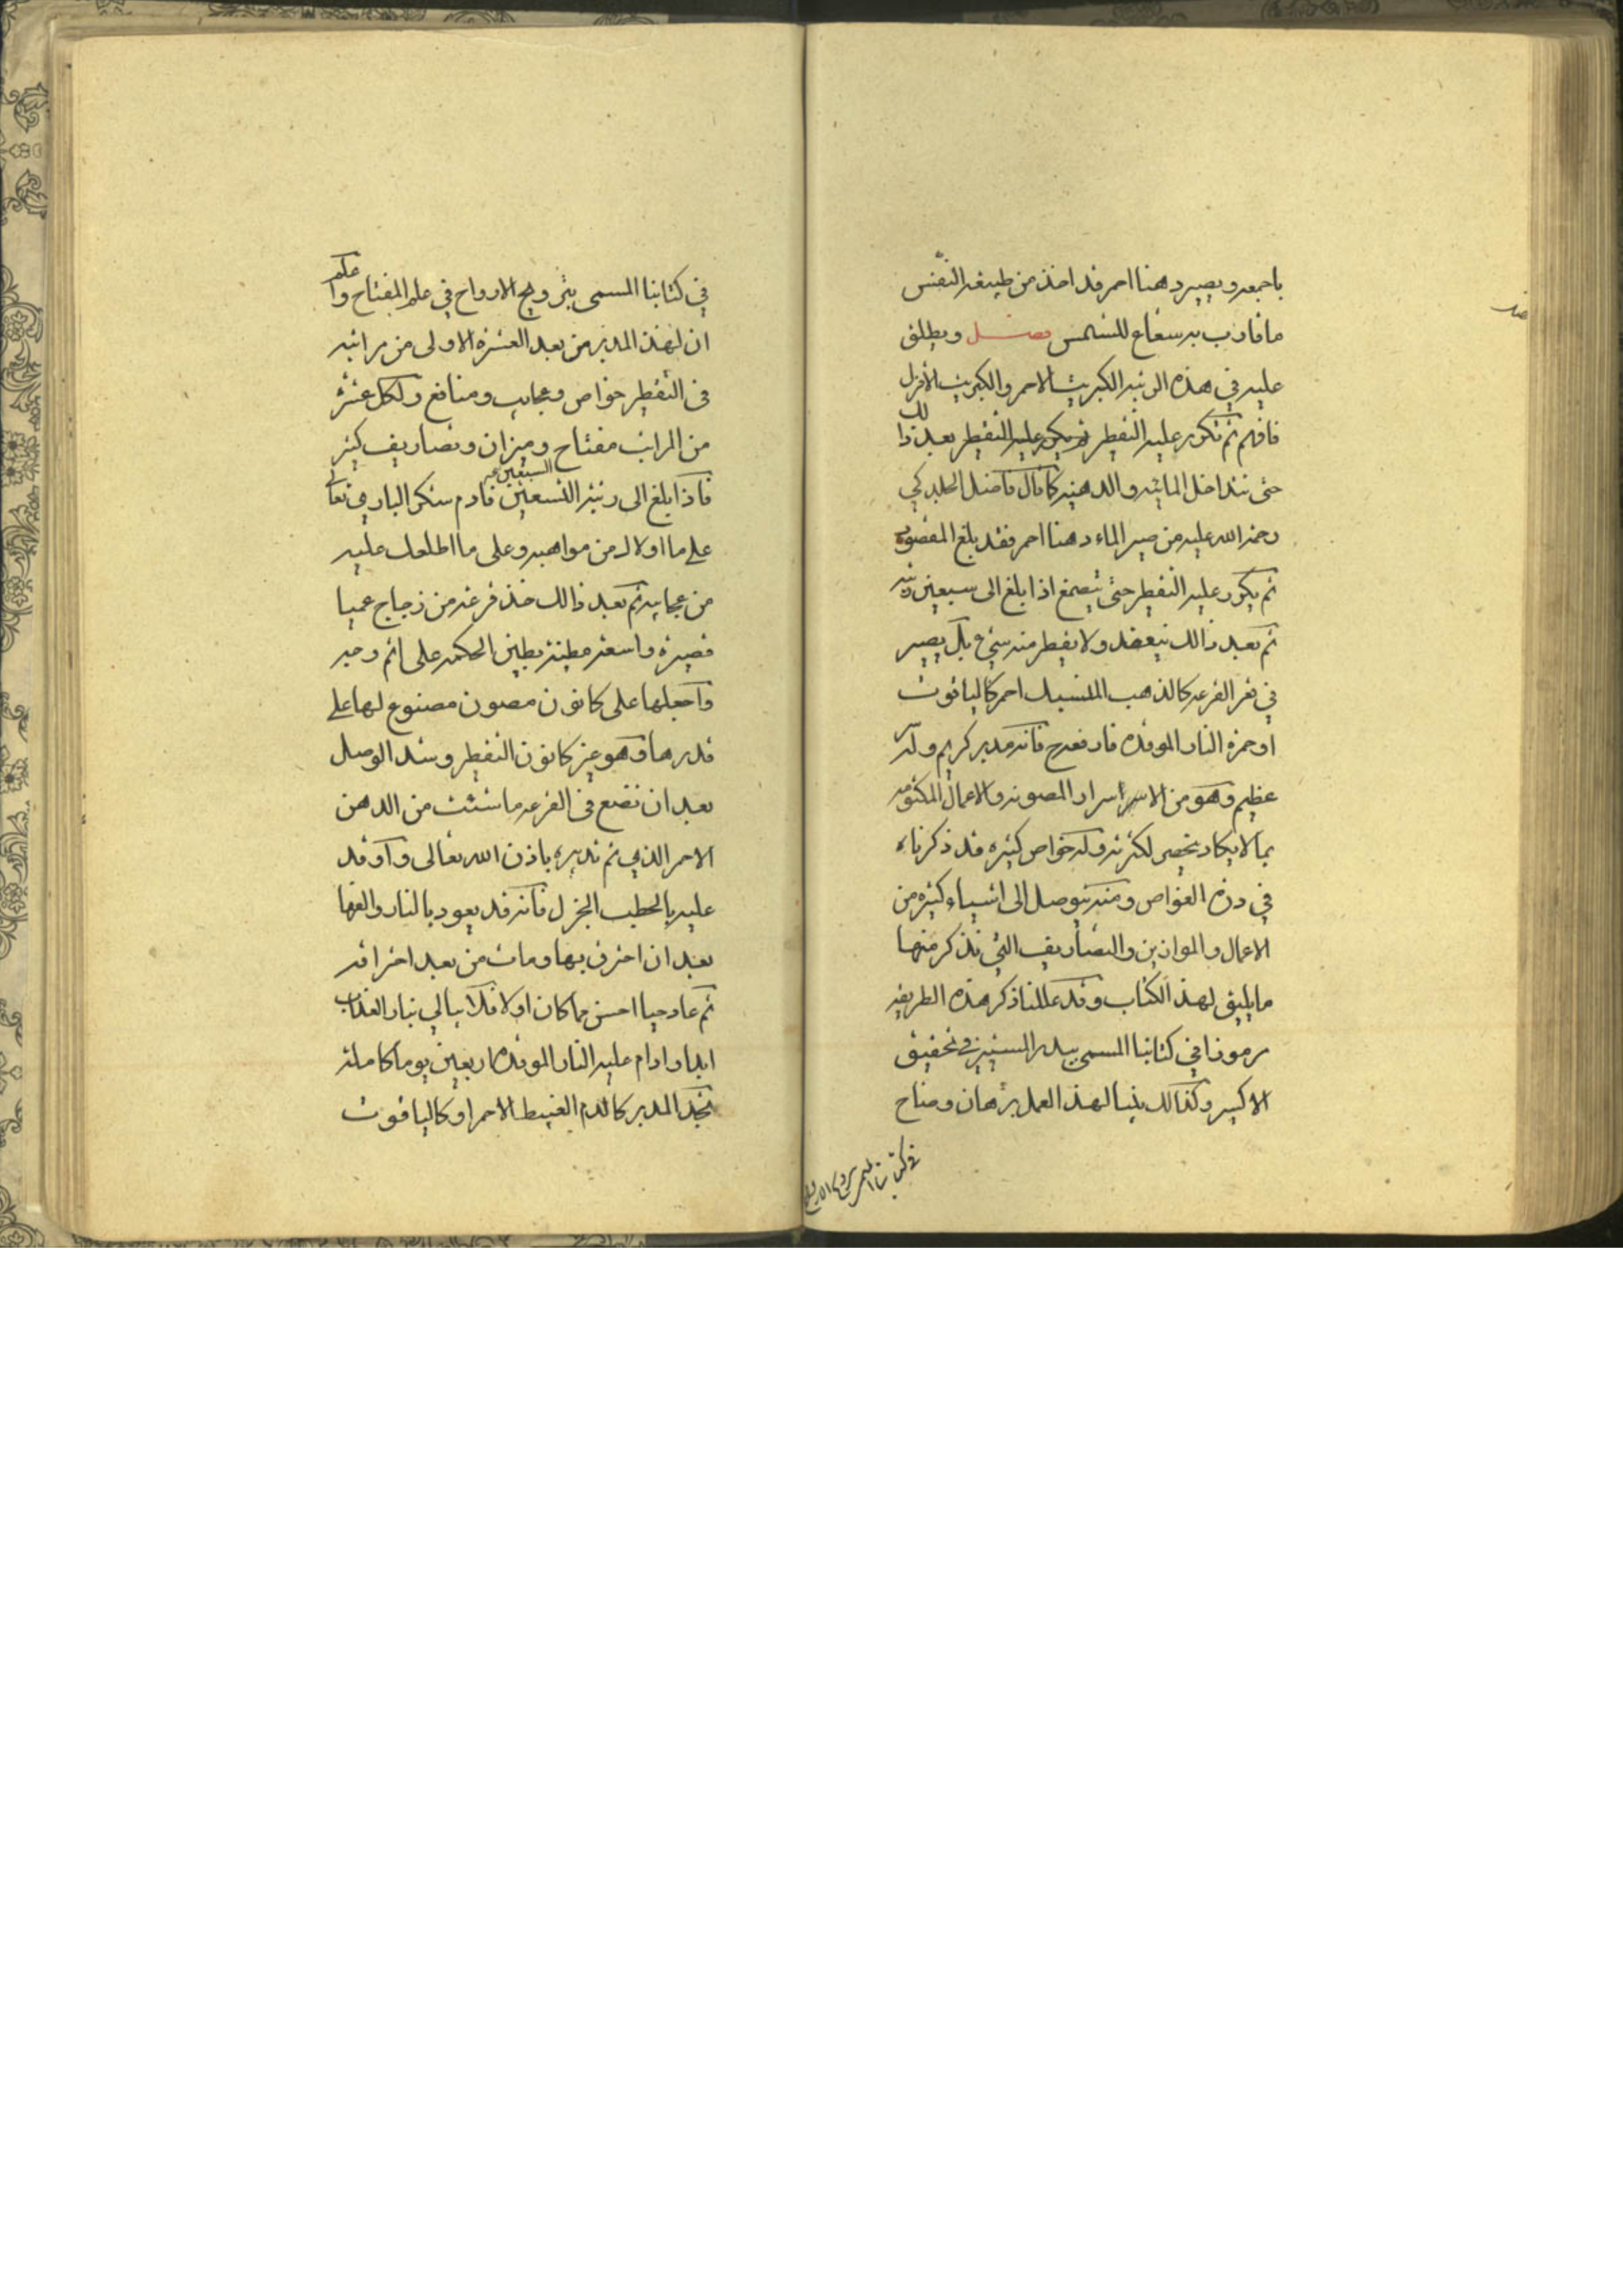 باجمعه ويصير دهنا احمر قد اخذ من طبيعة النفس
ما قارب به شعاع للشمس فصل ويطلق
عليه في هذه الرتبة الكبريت الاحمر والكبريت الأفزل
فافهم ثم تكرر عليه التقطير ثم يكرر عليه التقطير بعد ذالك
حتى تتداخل المائية والدهنية كما قال فاضل الجلدكي
رحمة الله عليه من صير الماء دهنا احمر فقد بلغ المقصود
ثم يكرر عليه التقطير حتى يتصمغ اذا بلغ الى سبعين رتبة
ثم بعد ذالك ينعقد ولا يقطر منه شيء بل يصير
في قعر القرعة كالذهب المنسبك احمر كالياقوت
او حمرة النار الموقدة فارفعه فانه مدبر كريم وله سر
عظيم وهو من الاسرار المصونة والاعمال المكتومة
بما لا يكاد يحصر لكثرته وله خواص كثيرة قد ذكرناه
في درة الغواص ومنه يتوصل الى اشياء كثيرة من
الاعمال والموازين والتصاريف التي نذكر منها
ما يليق لهذ الكتاب وقد عللنا ذكر هذه الطريقة
رموزا في كتابنا المسمى ببدر المنير في تحقيق
الاكسير وكذالك بينا لهذ العمل برهان وضاح
في كتابنا المسمى
في كتابنا المسمى بترويح الارواح في علم المفتاح واعلم
ان لهذ المدبر من بعد العشرة الاولى من مراتبه
في التقطير خواص وعجايب ومنافع ولكل عشرة
من المراتب مفتاح وميزان وتصاريف كثيرة
فاذا بلغ الى رتبة التسعين السبعين فادم شكر الباري تعالى
على ما اولاك من مواهبه وعلى ما اطلعك عليه
من عجايبه ثم بعد ذالك خذ قرعة من زجاج عميا
قصيرة واسعة مطينة بطين الحكمة على اتم وجه
واجعلها على كانون مصون مصنوع لها على
قدرها وهو غير كانون التقطير وشد الوصل
بعد ان تضع في القرعة ما شئت من الدهن
الاحمر الذي تم تدبيره باذن الله تعالى واوقد
عليه بالحطب الجزل فانه قد يعود بالنار والفها
بعد ان احترق بها ومات من بعد احتراقه
ثم عاد حيا احسن مما كان اولا فلا يبالي بنار العذاب
ابدا وادام عليه النار الموقدة اربعين يوما كاملة
تجد المدبر كالدم الغبيط الاحمر او كالياقوت